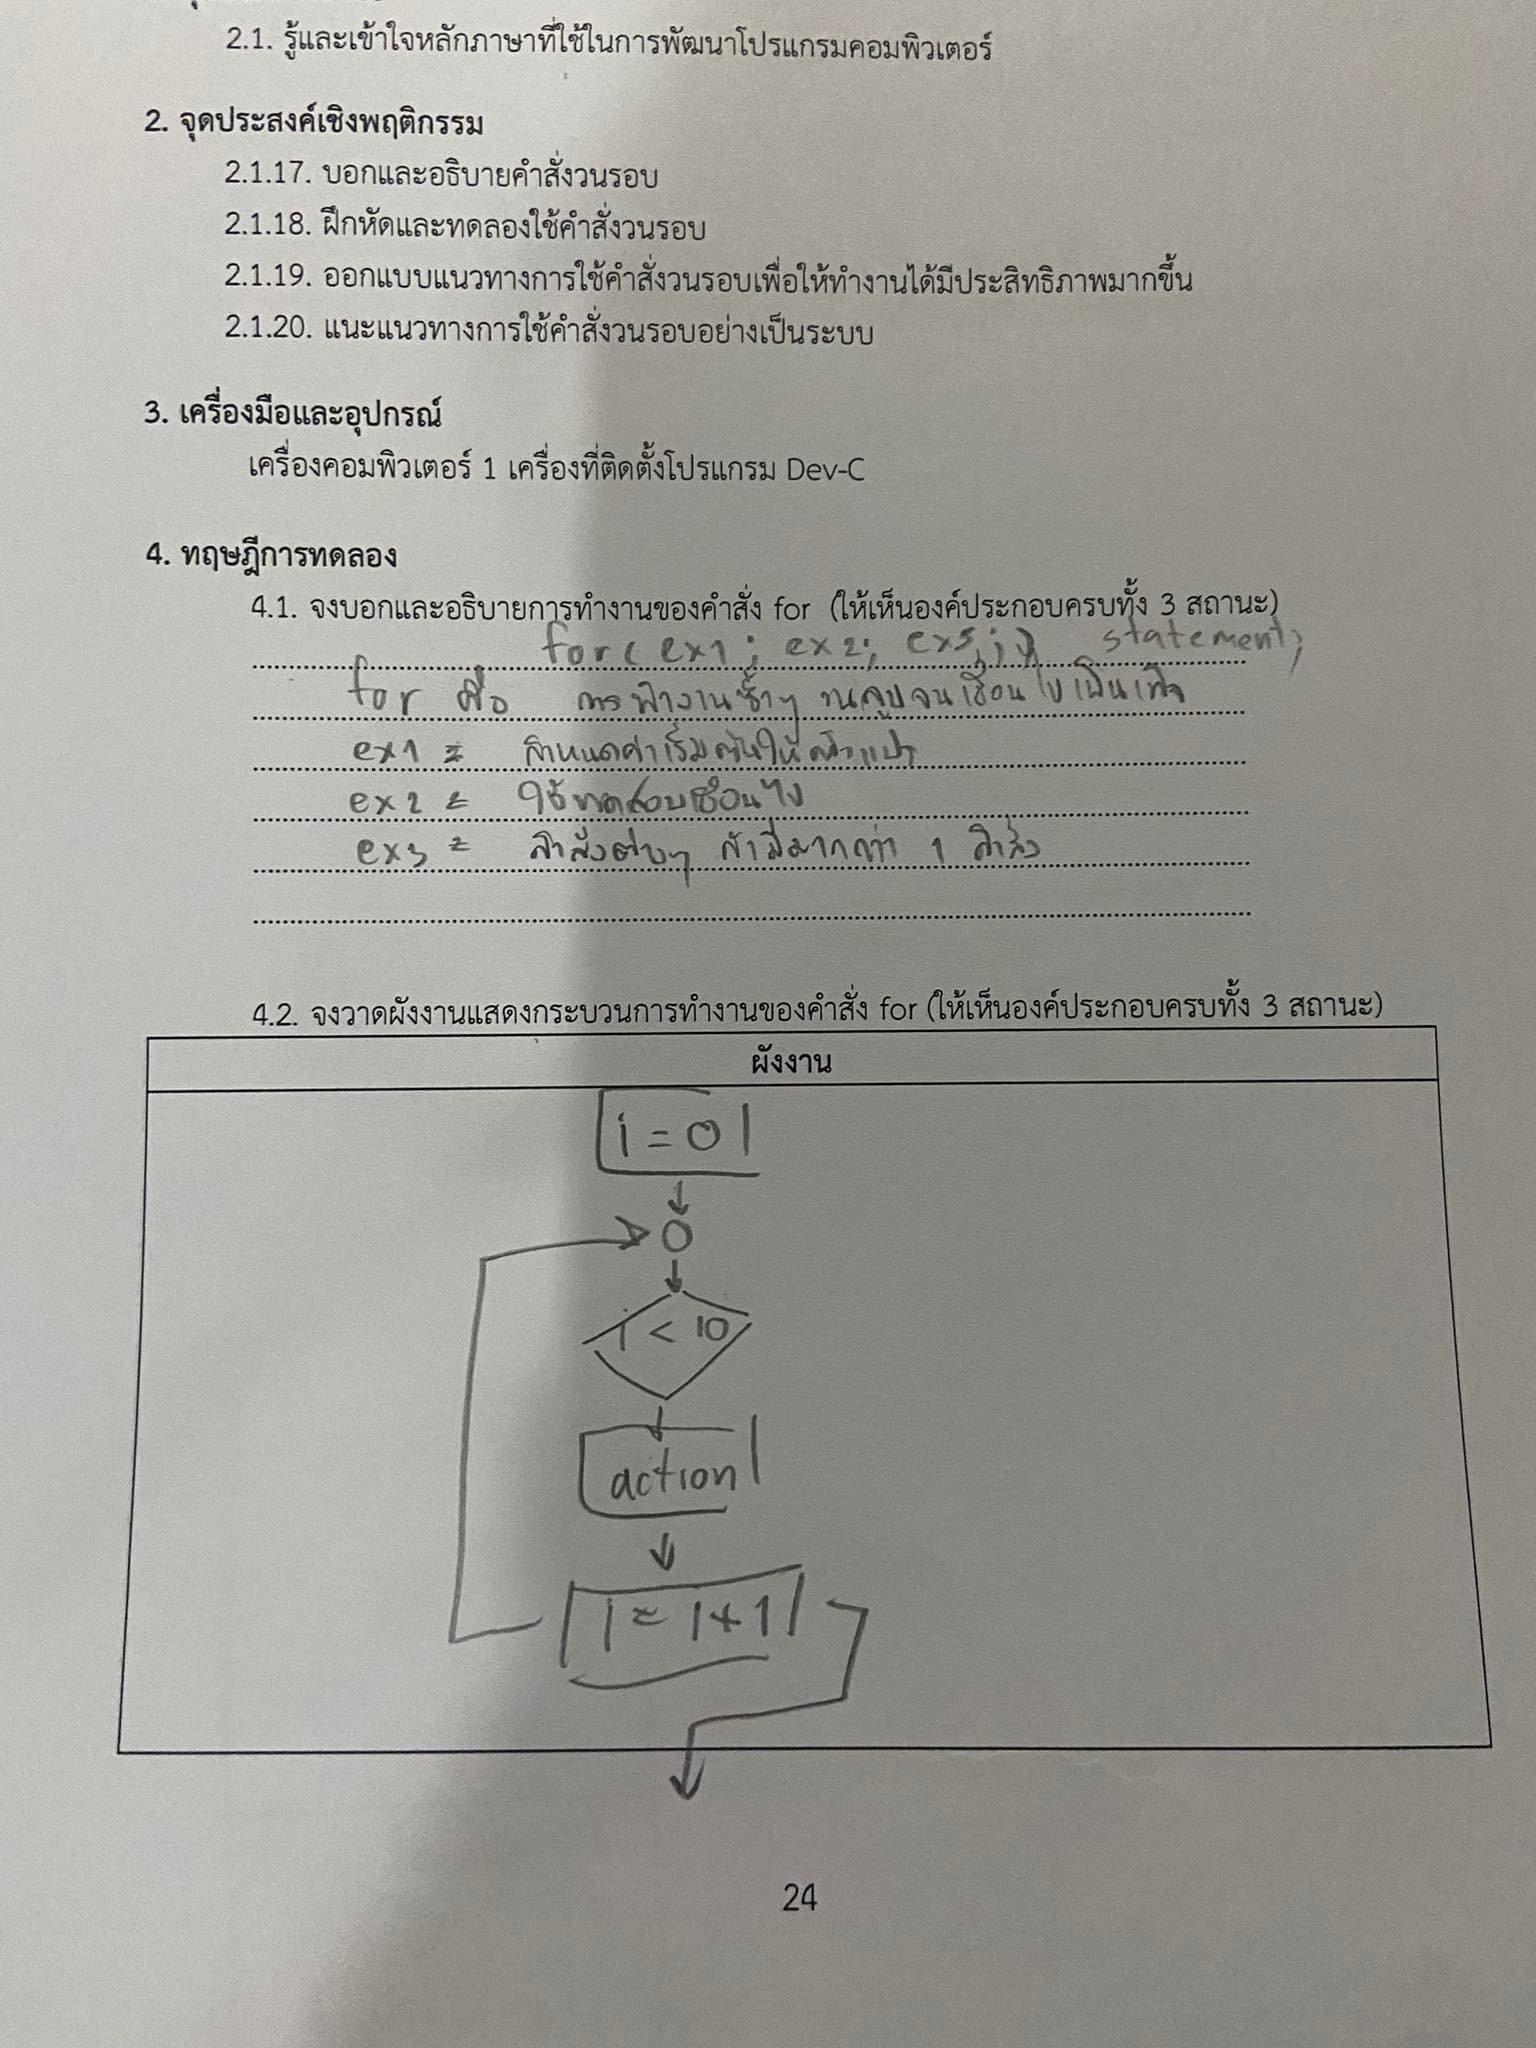 2.1. รู้และเข้าใจหลักภาษาที่ใช้ในการพัฒนาโปรแกรมคอมพิวเตอร์
2. จุดประสงค์เชิงพฤติกรรม
2.1.17. บอกและอธิบายคำสั่งวนรอบ
2.1.18. ฝึกหัดและทดลองใช้คำสั่งวนรอบ
2.1.19. ออกแบบแนวทางการใช้คำสั่งวนรอบเพื่อให้ทำงานได้มีประสิทธิภาพมากขึ้น
2.1.20. แนะแนวทางการใช้คำสั่งวนรอบอย่างเป็นระบบ
3. เครื่องมือและอุปกรณ์
เครื่องคอมพิวเตอร์ 1 เครื่องที่ติดตั้งโปรแกรม Dev-C
4. ทฤษฎีการทดลอง
4.1. จงบอกและอธิบายการทำงานของคำสั่ง for (ให้เห็นองค์ประกอบครบทั้ง 3 สถานะ)
for( ex1 ; ex2; statement;
for คือ การทำงานซ้ำๆ วนลูปจนเงื่อนไขเป็นเท็จ
ex1 = กำหนดค่าเริ่มต้นให้ตัวแปร
ex2 = ใช้ทดสอบเงื่อนไข
ex3 = คำสั่งต่างๆ ถ้ามีมากกว่า 1 คำสั่ง
4.2. จงวาดผังงานแสดงกระบวนการทำงานของคำสั่ง for (ให้เห็นองค์ประกอบครบทั้ง 3 สถานะ)
ผังงาน
i = 0
i < 10
action
i = i+1
24